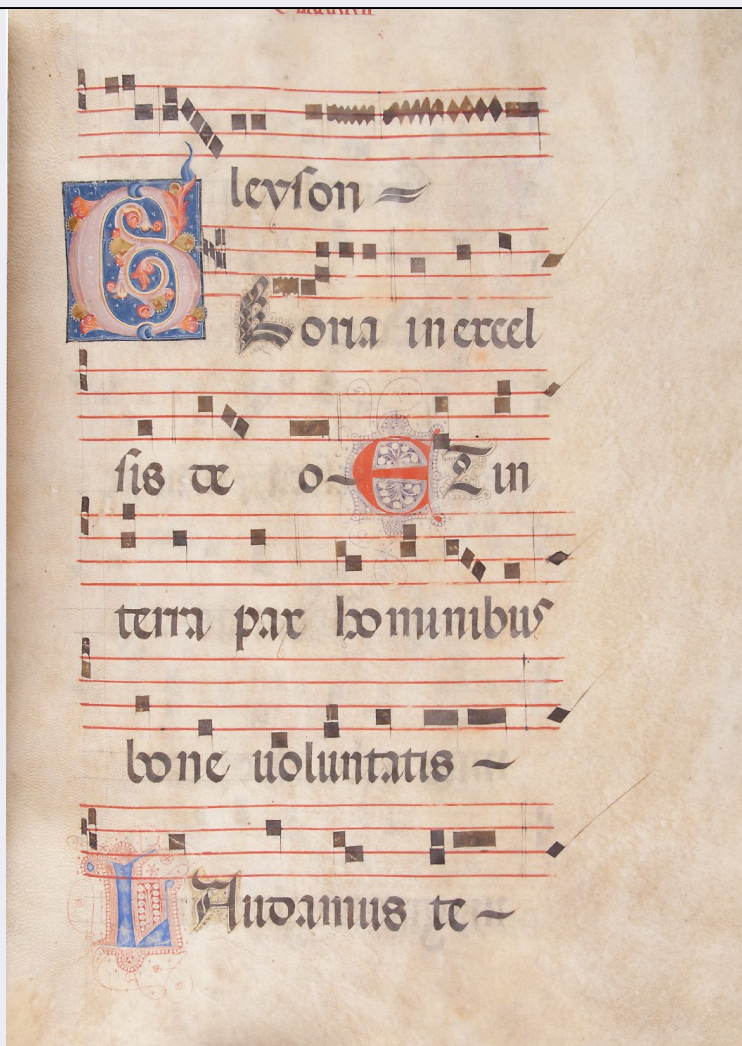 leyson
GLoria in excel
sis de o ET in
terra pax hominibus
bone uoluntatis
LAudamus te